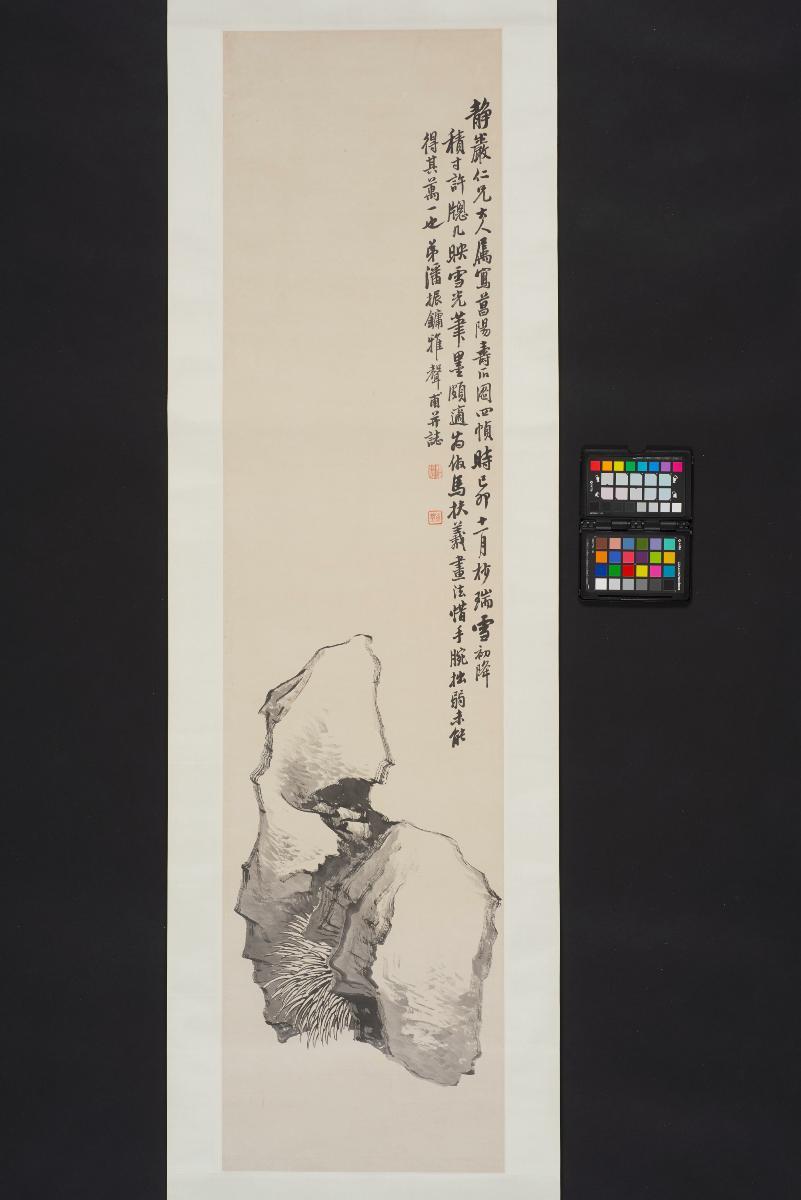 静巖仁兄大人属寫菖陽壽石圖四幀時己卯十一月杪瑞雪初降
積寸許牕几映雪光筆墨頗適為仿馬扶羲畫法惜手腕拙弱未能
得其萬一也弟潘振鏞雅聲甫并誌